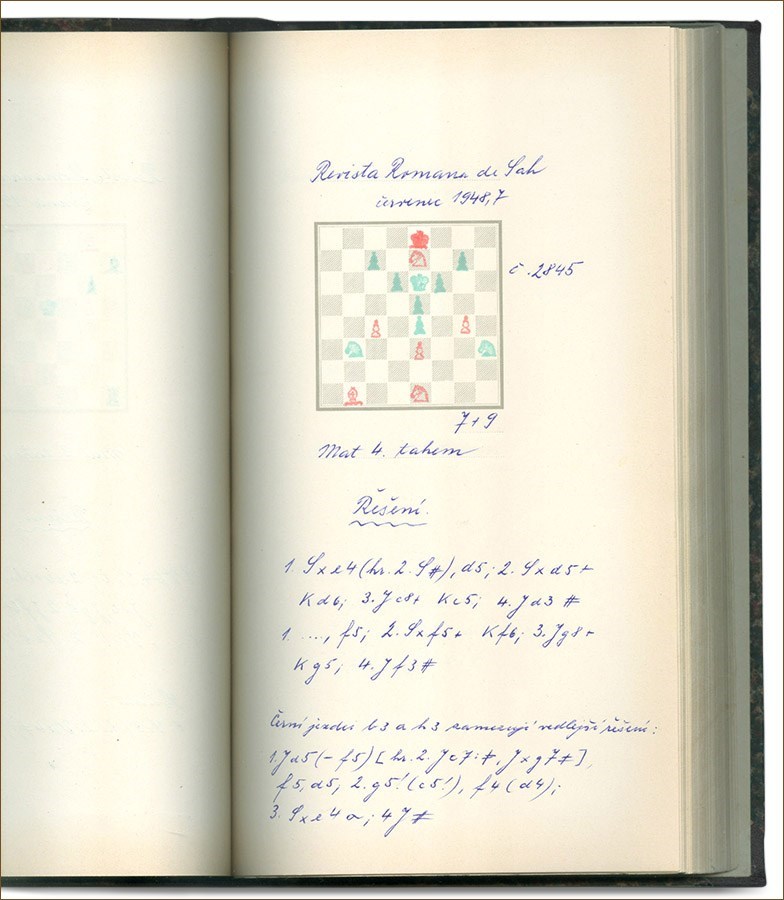 Revista Romana de Sah
červenec 1948, 7
č. 2845
7+9
Mat 4. tahem
Řešení.
1. Sxe4 (hr. 2. S#), d5; 2. Sxd5+
Kd6; 3. Jc8+ Kc5; 4. Jd3 #
1. ..., f5; 2. Sxf5+ Kf6; 3. Jg8+
Kg5; 4. Jf3 #
Černí jezdci b3 a h3 zamezují vedlejší řešení:
1. Jd5 (-f5) [hr. 2. Jc7: #, Jxg7 #],
f5, d5; 2. g5! (c5!), f4 (d4);
3. Sxe4 a; 4 J #